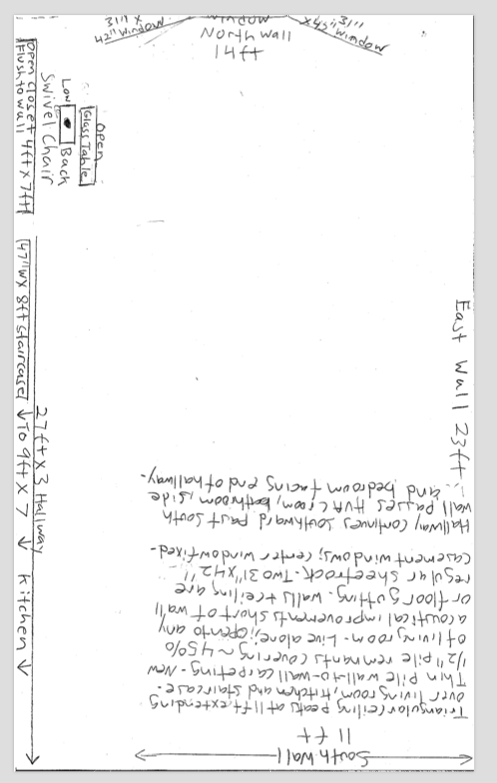 31" x
42" window
window
31"
x42"
window
North wall
14 ft
Open Closet 4ft x 7ft
Flush to wall
Swivel Chair
Low
Back
Glass Table
OPEN
47"W x 8ft staircase
↓ To 9ft x 7 ↓ Kitchen ↓
27ft x 3 Hallway
East Wall 23ft
South Wall
11 ft
Triangular ceiling peaks at 11 ft. extending
over living room, kitchen and staircase.
Thin pile wall-to-wall carpeting. New
1/2" pile remnants covering ~45%
of living room. Live alone; open to any
acoustical improvements short of wall
or floor gutting. Walls + ceiling are
regular sheetrock. Two 31"x42"
casement windows; center window fixed.
Hallway continues southward past South
wall passes HVAC room, bathroom, side
and bedroom facing end of hallway.